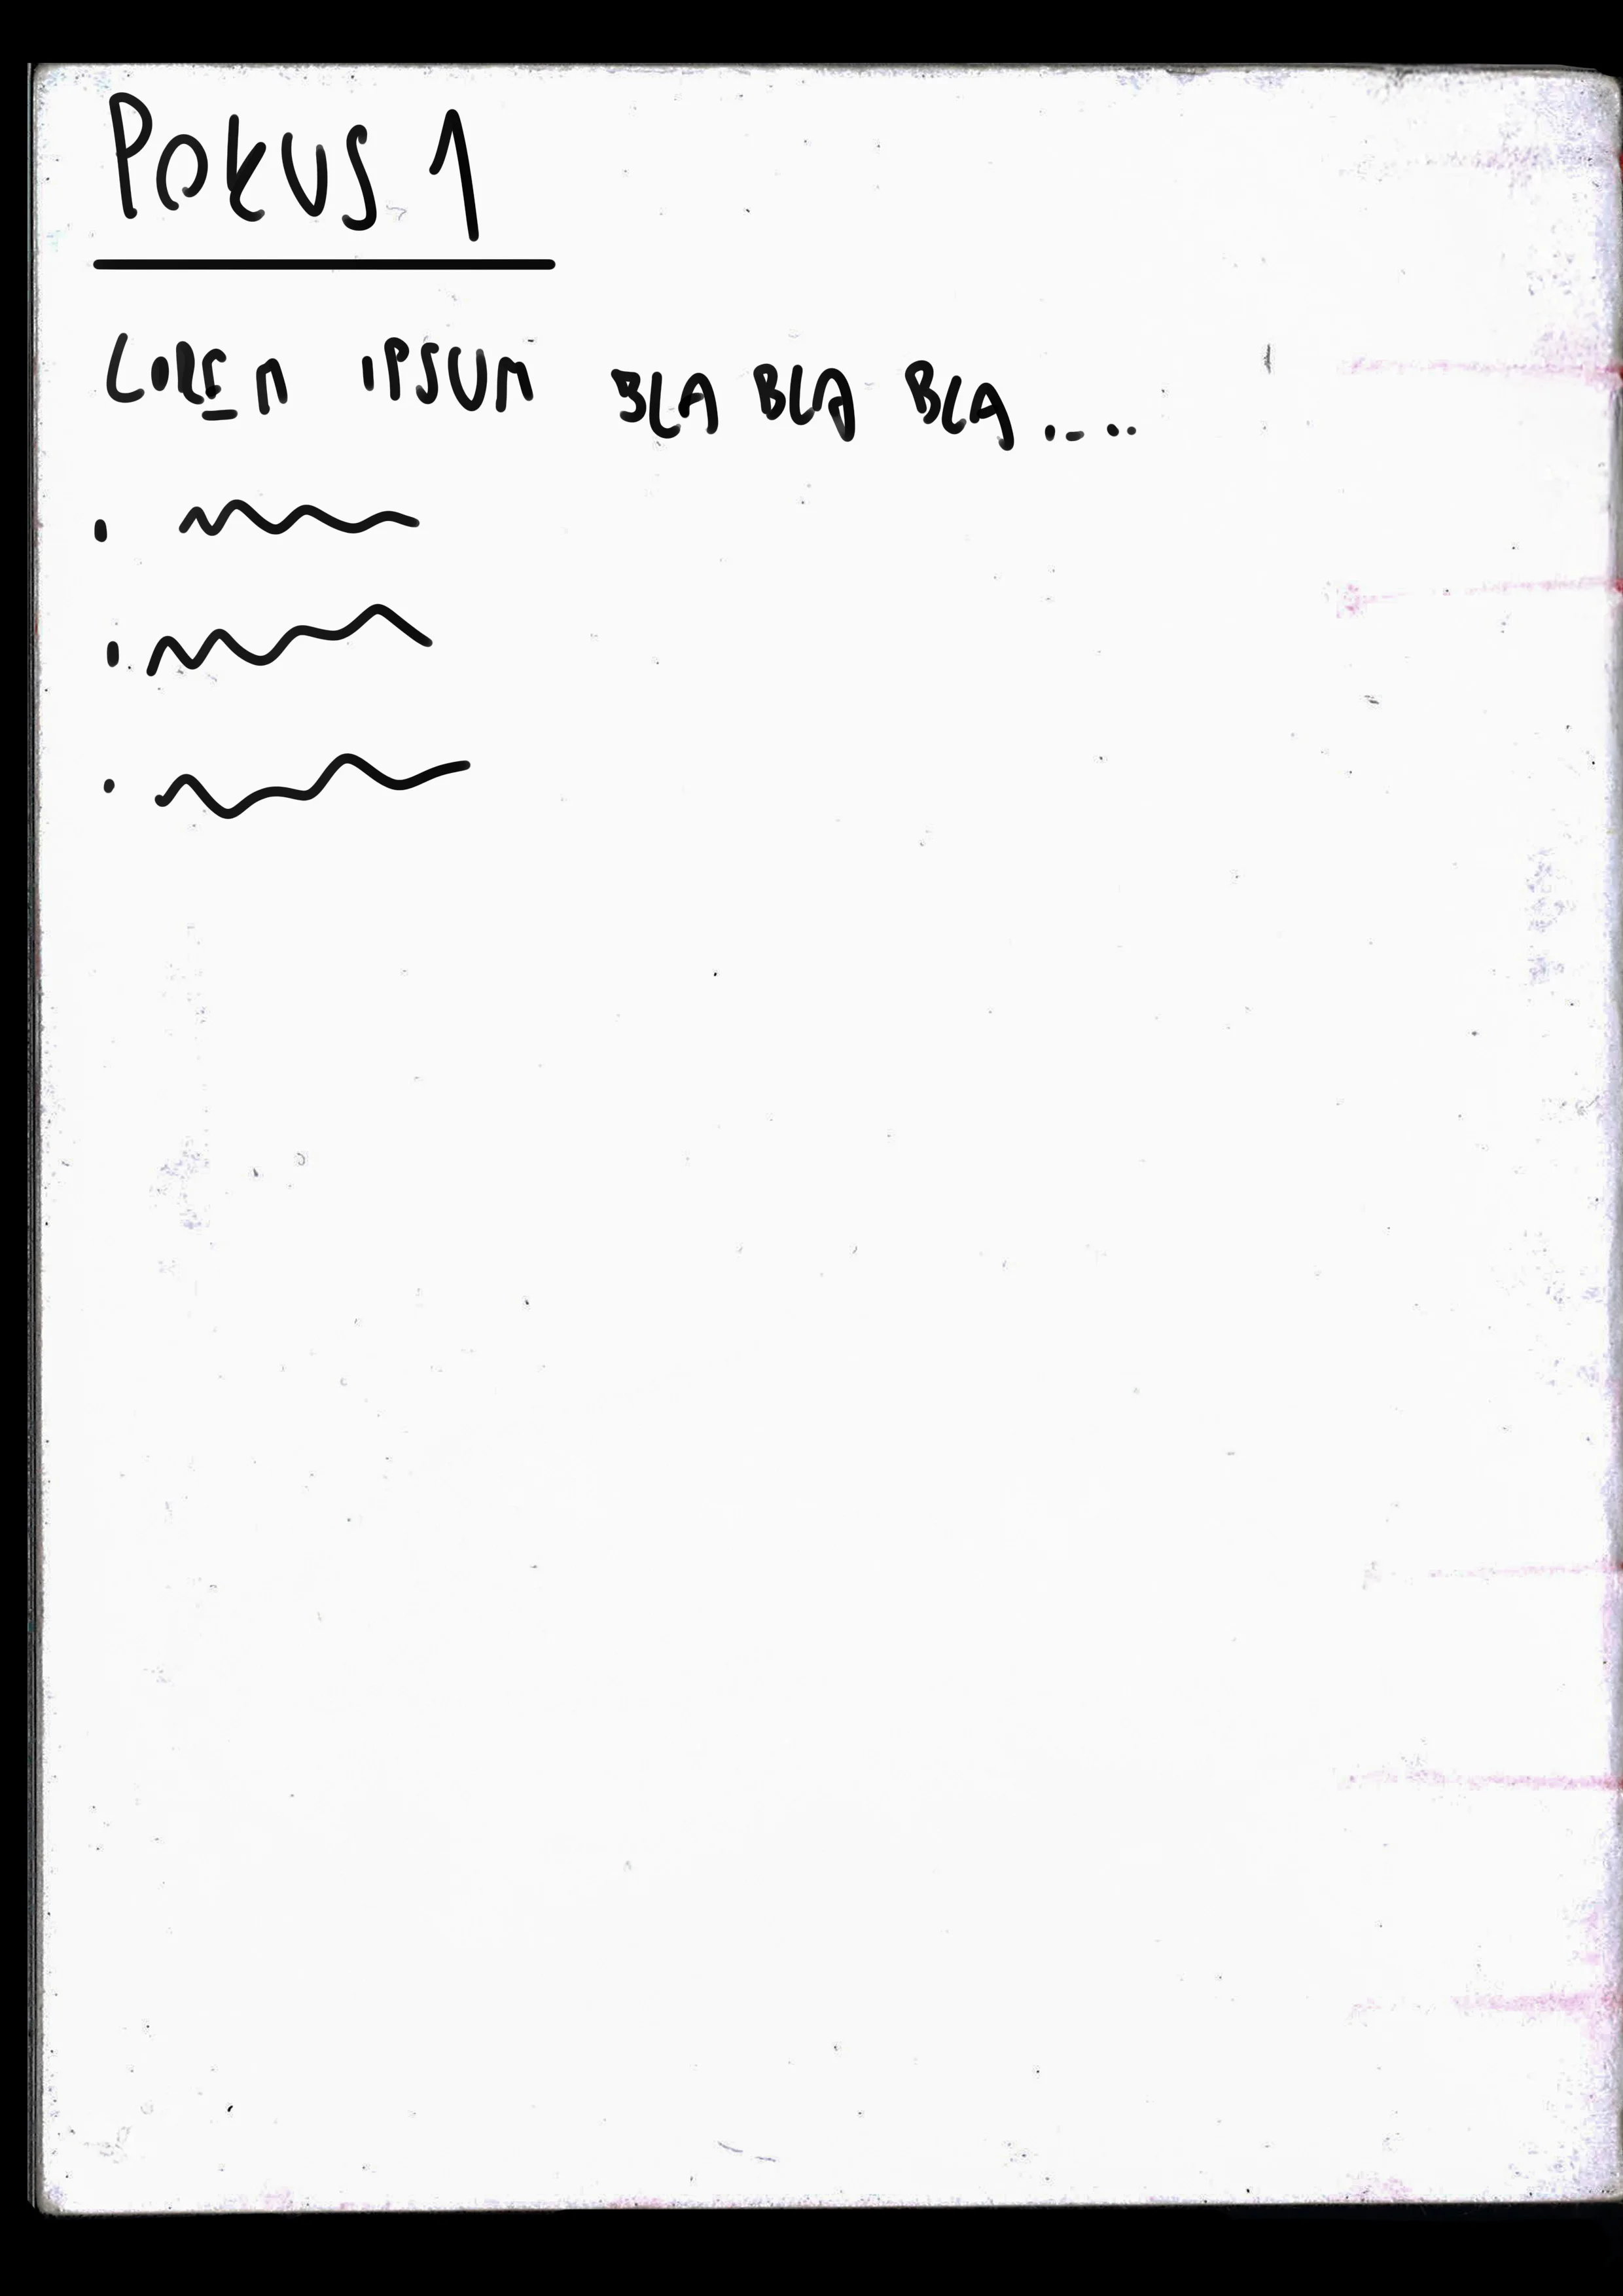 POKUS 1
LOREM IPSUM BLA BLA BLA....